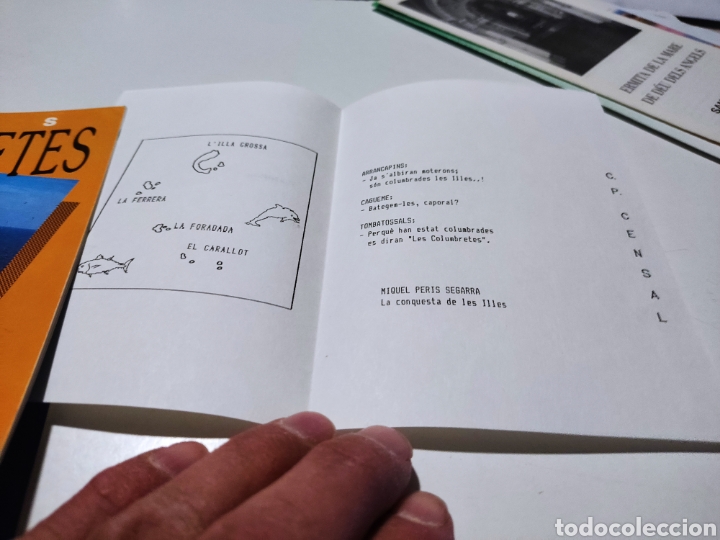 S
ETES
L'ILLA GROSSA
LA FERRERA
LA FORADADA
EL CARALLOT
ARRANCAPINS:
- Ja s'albiran muterons;
són columbrades les Illes..!
CAGUEME:
- Bategem-les, caporal?
TOMBATOSSALS:
- Perquè han estat columbrades
es diran "Les Columbretes".
MIQUEL PERIS SEGARRA
La conquesta de les Illes
C.P. CENSAL
ERMITA DE LA MARE
DE DÉU DELS ANGELS
todocoleccion
todocoleccion.net